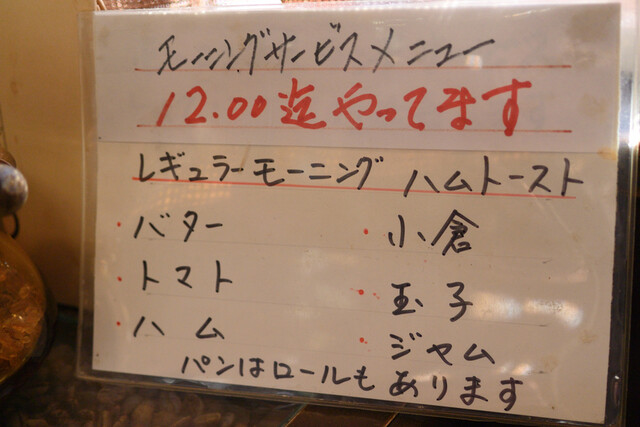 モーニングサービスメニュー
12.00迄やってます
レギュラーモーニング ハムトースト
・バター ・小倉
・トマト ・玉子
・ハム ・ジャム
パンはロールもあります